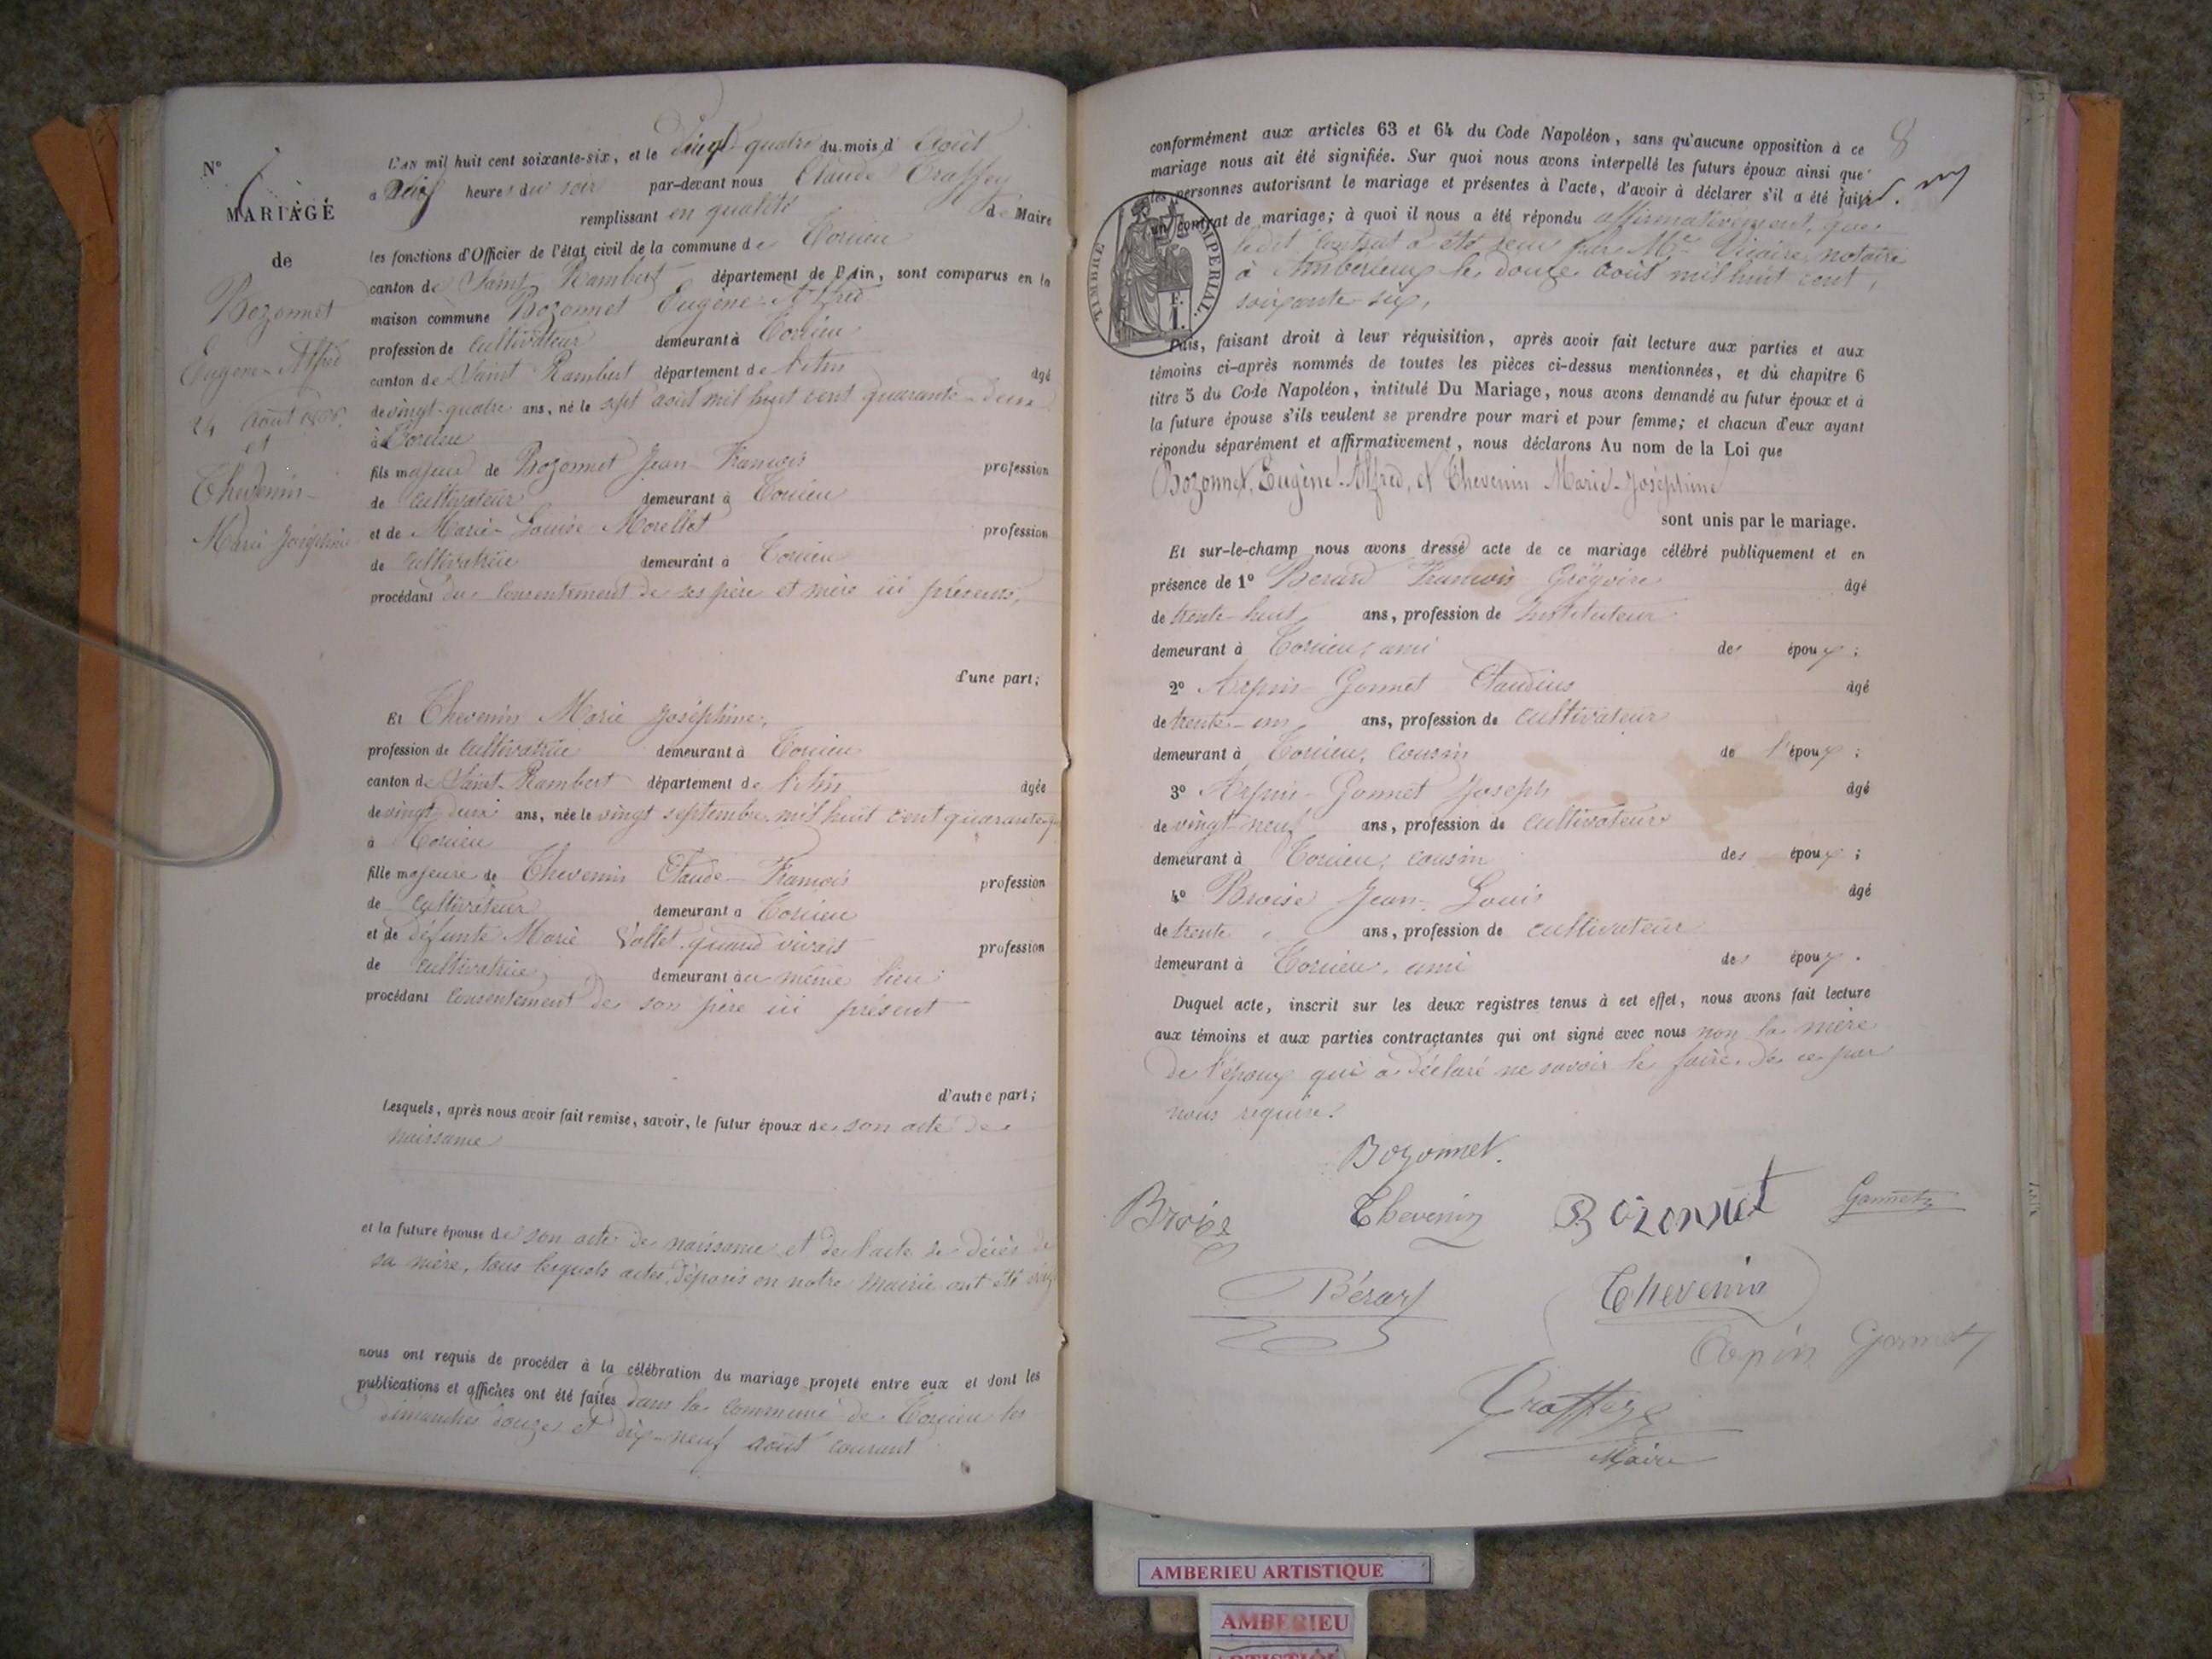 N°
MARIAGE
de
Bozonnet
Eugène-Alfred
24 Août 1866
et
Thevenin
Marie Joséphine
L'AN mil huit cent soixante-six, et le Vingt quatre du mois d'Août
à heures du soir par-devant nous Claude Traffey
remplissant en qualité de Maire
les fonctions d'Officier de l'état civil de la commune de Torcieu
canton de Saint Rambert département de l'Ain, sont comparus en la
maison commune Bozonnet Eugène-Alfred
profession de cultivateur demeurant à Torcieu
canton de Saint Rambert département de l'Ain âgé
de vingt-quatre ans, né le sept août mil huit cent quarante-deux
à Torcieu
fils majeur de Bozonnet Jean-François profession
de cultivateur demeurant à Torcieu
et de Marie-Louise Morellet profession
de cultivatrice demeurant à Torcieu
procédant du consentement de ses père et mère ici présents,
d'une part;
Et Thevenin Marie Joséphine,
profession de cultivatrice demeurant à Torcieu
canton de Saint-Rambert département de l'Ain âgée
de vingt-deux ans, née le vingt septembre mil huit cent quarante
à Torcieu
fille majeure de Thevenin Claude-François profession
de cultivateur demeurant à Torcieu
et de défunte Marie Vallet quand vivait profession
de cultivatrice demeurant au même lieu;
procédant consentement de son père ici présent
d'autre part;
Lesquels, après nous avoir fait remise, savoir, le futur époux de son acte de
naissance
et la future épouse de son acte de naissance et de l'acte de décès de
sa mère, tous lesquels actes déposés en notre mairie ont été
nous ont requis de procéder à la célébration du mariage projeté entre eux et dont les
publications et affiches ont été faites dans la commune de Torcieu les
dimanches douze et dix-neuf août courant
8
conformément aux articles 63 et 64 du Code Napoléon, sans qu'aucune opposition à ce
mariage nous ait été signifiée. Sur quoi nous avons interpellé les futurs époux ainsi que
les personnes autorisant le mariage et présentes à l'acte, d'avoir à déclarer s'il a été fait
un contrat de mariage; à quoi il nous a été répondu affirmativement, que
ledit contrat a été reçu par Me Vicaire, notaire
à Ambérieux le douze août mil huit cent
soixante-six,
TIMBRE IMPERIAL.
Puis, faisant droit à leur réquisition, après avoir fait lecture aux parties et aux
témoins ci-après nommés de toutes les pièces ci-dessus mentionnées, et du chapitre 6
titre 5 du Code Napoléon, intitulé Du Mariage, nous avons demandé au futur époux et à
la future épouse s'ils veulent se prendre pour mari et pour femme; et chacun d'eux ayant
répondu séparément et affirmativement, nous déclarons Au nom de la Loi que
Bozonnet, Eugène-Alfred, et Thevenin Marie-Joséphine
sont unis par le mariage.
Et sur-le-champ nous avons dressé acte de ce mariage célébré publiquement et en
présence de 1° Berard François Grégoire âgé
de trente-huit ans, profession de Instituteur
demeurant à Torcieu, ami des époux;
2° Arpin-Gonnet Claudius âgé
de trente-un ans, profession de cultivateur
demeurant à Torcieu, cousin de l'époux;
3° Arpin-Gonnet Joseph âgé
de vingt-neuf ans, profession de cultivateur
demeurant à Torcieu, cousin des époux;
4° Broise Jean-Louis âgé
de trente ans, profession de cultivateur
demeurant à Torcieu, ami des époux.
Duquel acte, inscrit sur les deux registres tenus à cet effet, nous avons fait lecture
aux témoins et aux parties contractantes qui ont signé avec nous non la mère
de l'époux qui a déclaré ne savoir le faire de ce par
nous requise.
Bozonnet.
Broise Thevenin Bozonnet Gonnet
Bérard Thevenin
Arpin Gonnet
Traffey
Maire
AMBERIEU ARTISTIQUE
AMBERIEU
ARTISTIQUE